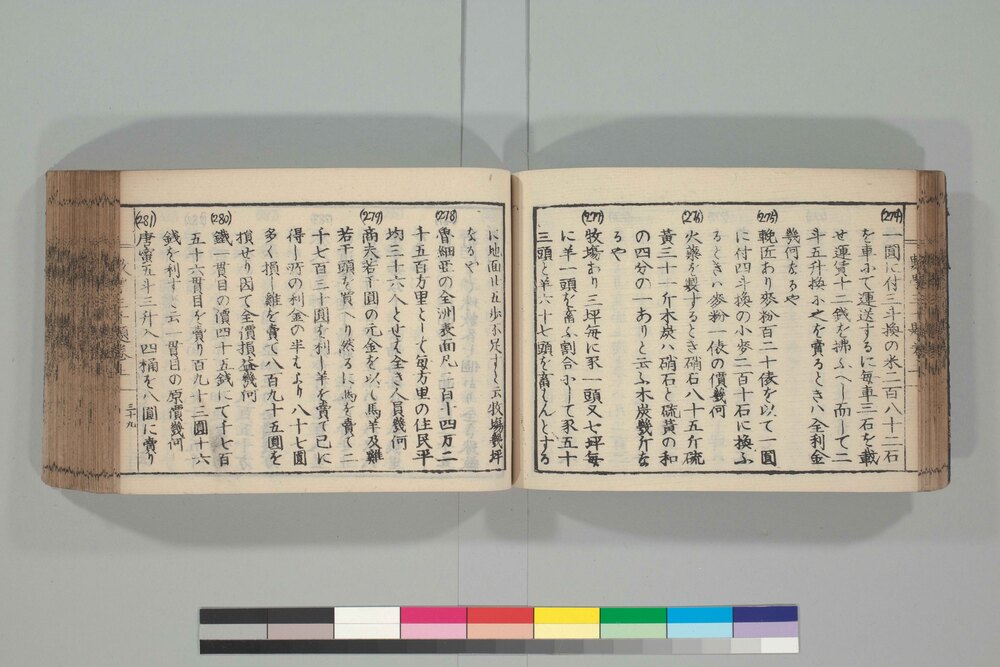 (274)
一圓に付三斗換の米二百八十二石
を車ホて運送するに毎車三石を載
せ運賃十二銭を拂ふへし而して二
斗五升換ホ之を賣るときハ全利金
幾何なるや
(275)
輓近あり麥粉百二十俵を以て一圓
に付四斗換の小麥二百十石に換ふ
るときハ麥粉一俵の價幾何
(276)
火藥を製するとき硝石八十五斤硫
黄三十一斤木炭ハ硝石と硫黄の和
の四分の一ありと云ふ木炭幾斤な
るや
(277)
牧場あり三坪毎に豕一頭又七坪毎
に羊一頭を畜ふ割合ホして豕五十
三頭と羊六十七頭を畜はんとする
に地面廿五歩不足すと云牧塲幾坪
なるや
(278)
魯細亜の全洲表面凡
百十四万二
千五百方里として毎方里の住民平
均三十六人とせは全き人員幾何
(279)
商夫若干圓の元金を以て馬羊及雞
若干頭を買へり然るに馬を賣て二
千七百三十圓を利し羊を賣て已に
得し所の利金の半はより八十七圓
多く損し雞を賣て八百九十五圓を
損せり因て全價損益幾何
(280)
鐵一貫目の價四十五銭にて千七百
五十六貫目を賣り百九十三圓十六
銭を利すと云一貫目の原價幾何
(281)
唐蜜五斗三升入四桶を八圓に賣り
三十九